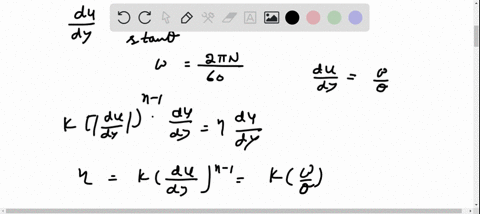 du/dy s tanθ
ω = 2πN/60
du/dy = ω/θ
K [|du/dy|]^n-1 · du/dy = η du/dy
η = K (du/dy)^n-1 = K (ω/θ)